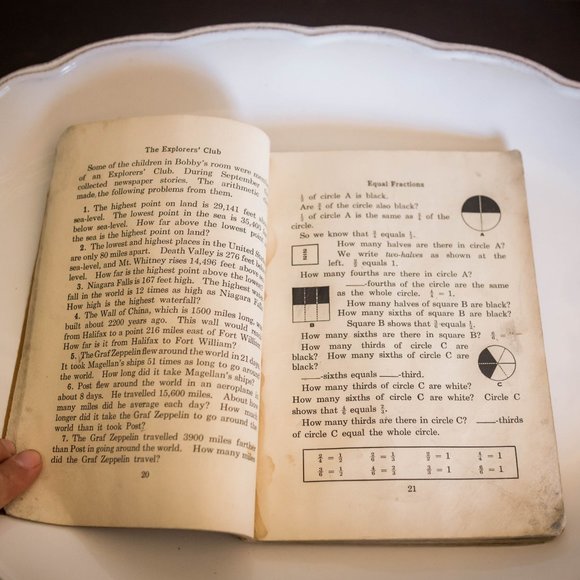 The Explorers' Club
Some of the children in Bobby's room were
of an Explorers' Club. During September
collected newspaper stories. The arithmetic
made the following problems from them.
1. The highest point on land is 29,141 feet
sea-level. The lowest point in the sea is 35,400
below sea-level. How far above the lowest point
the sea is the highest point on land?
2. The lowest and highest places in the United
are only 80 miles apart. Death Valley is 276 feet
sea-level, and Mt. Whitney rises 14,496 feet above
level. How far is the highest point above the lowest
3. Niagara Falls is 167 feet high. The highest
fall in the world is 12 times as high as Niagara
How high is the highest waterfall?
4. The Wall of China, which is 1500 miles long,
built about 2200 years ago. This wall would
from Halifax to a point 216 miles east of Fort William
How far is it from Halifax to Fort William?
5. The Graf Zeppelin flew around the world in 21 days
It took Magellan's ships 51 times as long to go around
the world. How long did it take Magellan's ships?
6. Post flew around the world in an aeroplane in
about 8 days. He travelled 15,600 miles. About how
many miles did he average each day? How much
longer did it take the Graf Zeppelin to go around the
world than it took Post?
7. The Graf Zeppelin travelled 3900 miles farther
than Post in going around the world. How many miles
did the Graf Zeppelin travel?
20
Equal Fractions
½ of circle A is black.
Are 2/4 of the circle also black?
½ of circle A is the same as 2/4 of the
circle.
So we know that 2/4 equals ½.
A
How many halves are there in circle A?
We write two-halves as shown at the
left. 2/2 equals 1.
How many fourths are there in circle A?
___-fourths of the circle are the same
as the whole circle. 4/4 = 1.
How many halves of square B are black?
How many sixths of square B are black?
B
Square B shows that 3/6 equals ½.
How many sixths are there in square B? 6/6 = ___
How many thirds of circle C are
black? How many sixths of circle C are
black?
C
___-sixths equals ___-third.
How many thirds of circle C are white?
How many sixths of circle C are white? Circle C
shows that 4/6 equals 2/3.
How many thirds are there in circle C? ___-thirds
of circle C equal the whole circle.
2/4 = 1/2 2/6 = 1/3 2/2 = 1 4/4 = 1
3/6 = 1/2 4/6 = 2/3 3/3 = 1 6/6 = 1
21